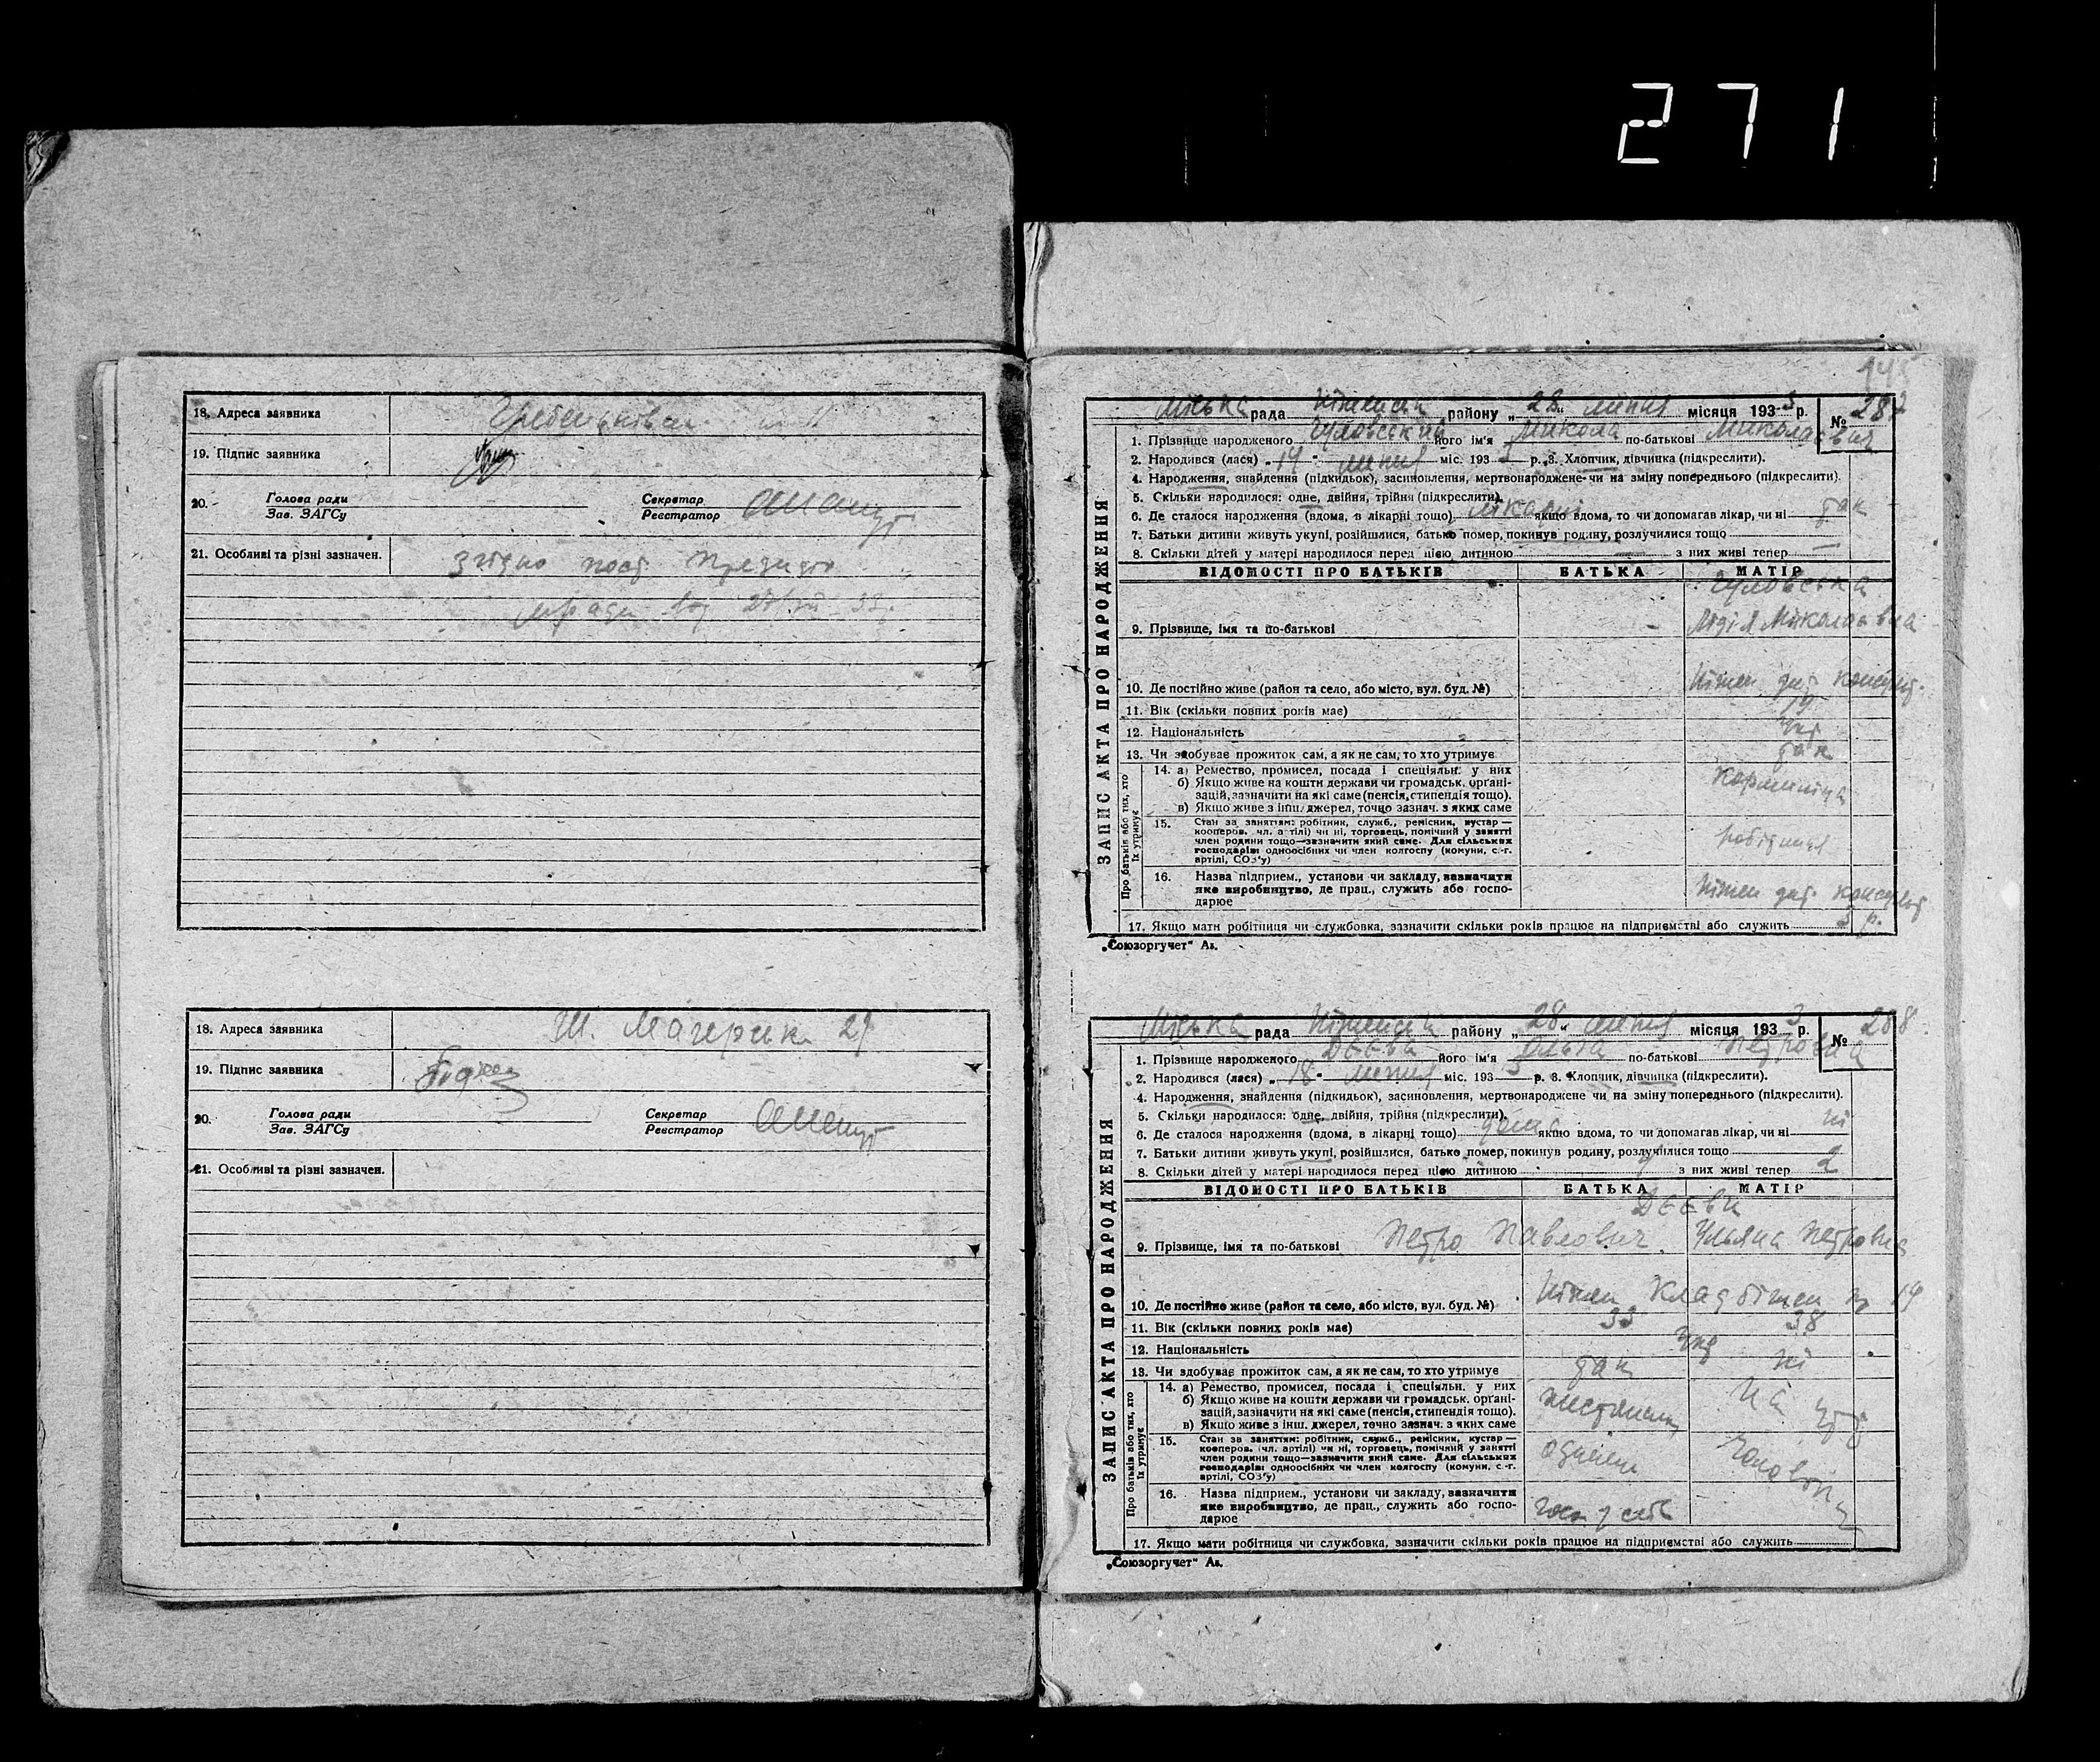 271
18. Адреса заявника
19. Підпис заявника
20. Голова ради Секретар
Зав. ЗАГСу Реєстратор
21. Особливі та різні зазначен. згідно пост. президії
18. Адреса заявника Ш. Магерська 29
19. Підпис заявника
20. Голова ради Секретар
Зав. ЗАГСу Реєстратор
21. Особливі та різні зазначен.
145
ЗАПИС АКТА ПРО НАРОДЖЕННЯ
Міська рада Ніженська району „28“ липня місяця 1933 р. № 287
1. Прізвище народженого його ім'я Микола по-батькові Миколаєвич
2. Народився (лася) „14“ липня міс. 1933 р. 3. Хлопчик, дівчинка (підкреслити).
4. Народження, знайдення (підкидьок), засиновлення, мертвонароджене чи на зміну попереднього (підкреслити).
5. Скільки народилося: одне, двійня, трійня (підкреслити).
6. Де сталося народження (вдома, в лікарні тощо) лікарні якщо вдома, то чи допомагав лікар, чи ні так
7. Батьки дитини живуть укупі, розійшлися, батько помер, покинув родину, розлучилися тощо —
8. Скільки дітей у матері народилося перед цією дитиною — з них живі тепер —
ВІДОМОСТІ ПРО БАТЬКІВ БАТЬКА МАТІР
9. Прізвище, імя та по-батькові — Лідія Миколаєвна
10. Де постійно живе (район та село, або місто, вул. буд. №) Ніжен дит. консульт.
11. Вік (скільки повних років має) 19
12. Національність укр
13. Чи здобуває прожиток сам, а як не сам, то хто утримує так
Про батьків або тих, хто їх утримує
14. а) Ремество, промисел, посада і спеціяльн. у них кормилиця
б) Якщо живе на кошти держави чи громадськ. органі-
зацій, зазначити на які саме (пенсія, стипендія тощо).
в) Якщо живе з інш. джерел, точно зазнач. з яких саме
15. Стан за заняттям: робітник, служб., ремісник, кустар —
кооперов. чл. артілі) чи ні, торговець, помічний у занятті
член родини тощо—зазначити який саме. Для сільських робітниця
господарів: одноосібних чи член колгоспу (комуни, с.-г.
артілі, СОЗ'у)
16. Назва підприєм., установи чи закладу, зазначити Ніжен дит. консульт
яке виробництво, де прац., служить або госпо-
дарює
17. Якщо мати робітниця чи службовка, зазначити скільки років працює на підприємстві або служить р.
„Союзоргучет“ Аз.
ЗАПИС АКТА ПРО НАРОДЖЕННЯ
Міська рада Ніженська району „28“ липня місяця 1933 р. № 288
1. Прізвище народженого Дєєва його ім'я Ольга по-батькові Петровна
2. Народився (лася) „18“ липня міс. 1933 р. 3. Хлопчик, дівчинка (підкреслити).
4. Народження, знайдення (підкидьок), засиновлення, мертвонароджене чи на зміну попереднього (підкреслити).
5. Скільки народилося: одне, двійня, трійня (підкреслити).
6. Де сталося народження (вдома, в лікарні тощо) дома якщо вдома, то чи допомагав лікар, чи ні ні
7. Батьки дитини живуть укупі, розійшлися, батько помер, покинув родину, розлучилися тощо
8. Скільки дітей у матері народилося перед цією дитиною з них живі тепер 2
ВІДОМОСТІ ПРО БАТЬКІВ БАТЬКА МАТІР
Дєєви
9. Прізвище, імя та по-батькові Петро Павлович Уляна Петровна
10. Де постійно живе (район та село, або місто, вул. буд. №) Ніжен 19
11. Вік (скільки повних років має) 33 38
12. Національність укр
13. Чи здобуває прожиток сам, а як не сам, то хто утримує так ні
Про батьків або тих, хто їх утримує
14. а) Ремество, промисел, посада і спеціяльн. у них
б) Якщо живе на кошти держави чи громадськ. органі-
зацій, зазначити на які саме (пенсія, стипендія тощо).
в) Якщо живе з інш. джерел, точно зазнач. з яких саме
15. Стан за заняттям: робітник, служб., ремісник, кустар —
кооперов. (чл. артілі) чи ні, торговець, помічний у занятті
член родини тощо—зазначити який саме. Для сільських
господарів: одноосібних чи член колгоспу (комуни, с.-г.
артілі, СОЗ'у)
16. Назва підприєм., установи чи закладу, зазначити
яке виробництво, де прац., служить або госпо-
дарює
17. Якщо мати робітниця чи службовка, зазначити скільки років працює на підприємстві або служить
„Союзоргучет“ Аз.